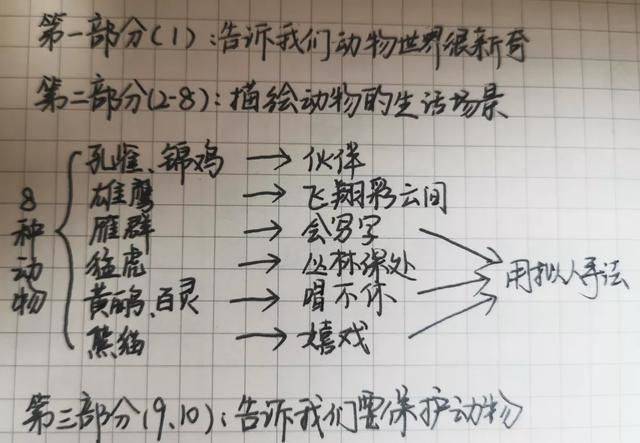 第一部分(1):告诉我们动物世界很新奇
第二部分(2-8):描绘动物的生活场景
8种动物
孔雀、锦鸡 → 伙伴
雄鹰 → 飞翔彩云间
雁群 → 会写字
猛虎 → 丛林深处
黄鹂、百灵 → 唱不休
熊猫 → 嬉戏
用拟人手法
第三部分(9,10):告诉我们要保护动物